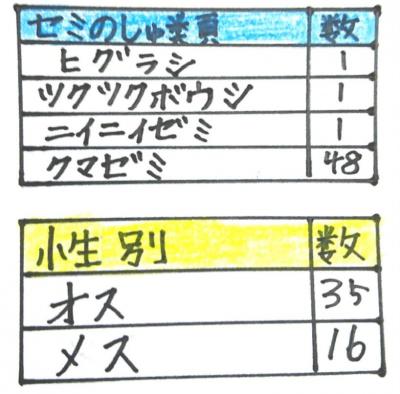 セミのしゅ類 数
ヒグラシ 1
ツクツクボウシ 1
ニイニイゼミ 1
クマゼミ 48
性別 数
オス 35
メス 16